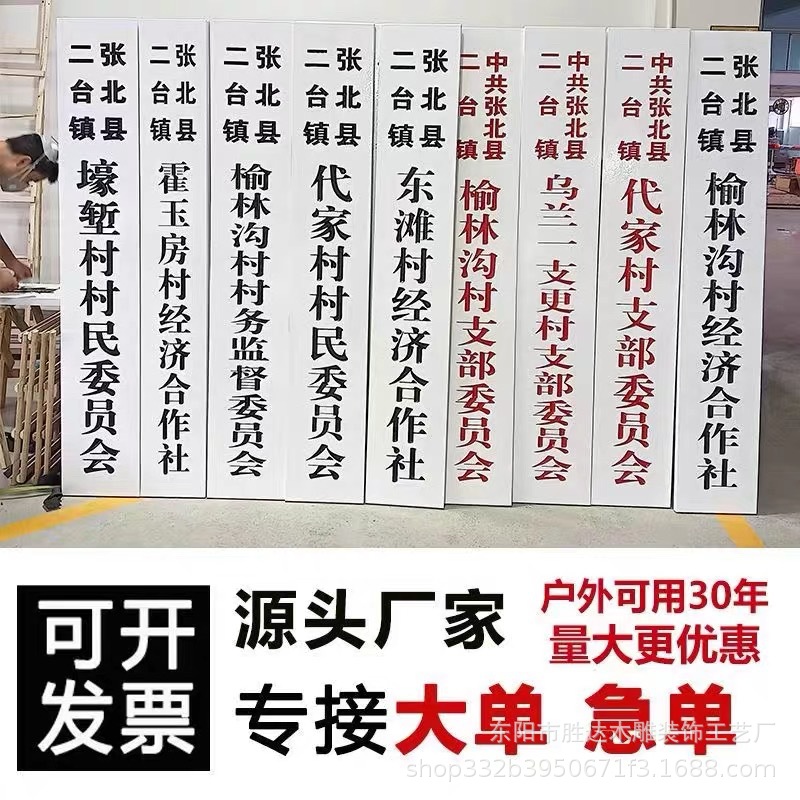 张北县
二台镇
壕堑村村民委员会
张北县
二台镇
霍玉房村经济合作社
张北县
二台镇
榆林沟村村务监督委员会
张北县
二台镇
代家村村民委员会
张北县
二台镇
东滩村经济合作社
中共张北县
二台镇
榆林沟村支部委员会
中共张北县
二台镇
乌兰一支更村支部委员会
中共张北县
二台镇
代家村支部委员会
张北县
二台镇
榆林沟村经济合作社
可开
发票
源头厂家
户外可用30年
量大更优惠
专接大单 急单
东阳市胜达木雕装饰工艺厂
shop332b3950671f3.1688.com